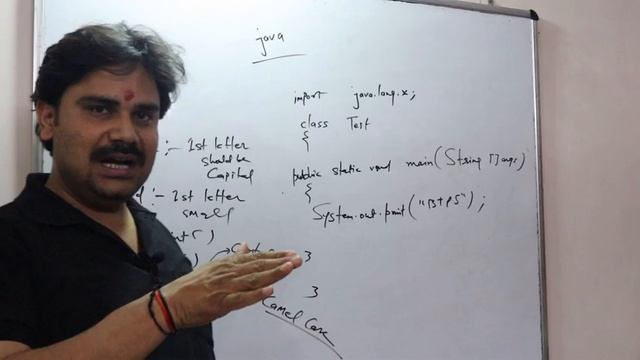 java
import java.lang.x;
class Test
{
:- 1st letter
should be
Capital
public static void main(String []args)
{
:- 1st letter
small
System.out.print("BTPS");
)
3
3
Camel Case